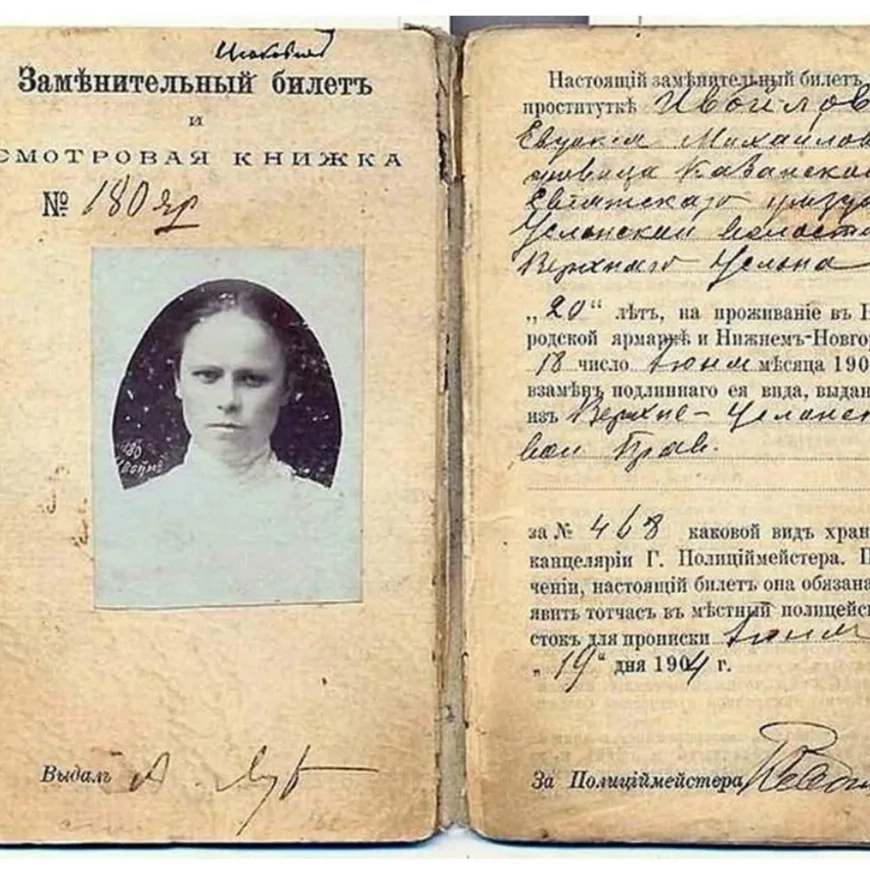 Замѣнительный билетъ
и
СМОТРОВАЯ КНИЖКА
№ 180 яр
180
Выдалъ
Настоящій замѣнительный билетъ
проституткѣ Ивойлов
Евдокіи Михайлов
Казанской
уѣзда
Услонской волости
Верхняго Услона
„20“ лѣтъ, на проживаніе въ Н
родской ярмаркѣ и Нижнемъ-Новгор
18 число Іюня мѣсяца 190
взамѣнъ подлиннаго ея вида, выдан
изъ Верхне-Услонск
вол. Прав.
за № 468 каковой видъ хран
канцеляріи Г. Полиціймейстера. П
ченіи, настоящій билетъ она обязана
явить тотчасъ въ мѣстный полицейс
стокъ для прописки Іюня
„19“ дня 1904 г.
За Полиціймейстера